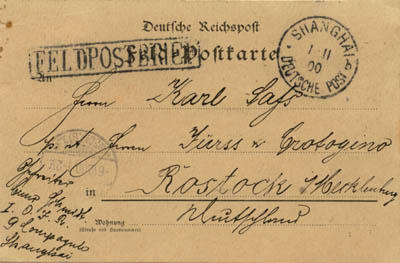 Deutsche Reichspost
FELDPOSTBRIEF
Feldpostkarte
SHANGHAI
1 11
00
DEUTSCHE POST
An
Herrn Karl Saß
p. Adr. Herren Fürss & Crotogino
in Rostock i/Mecklenburg
Deutschland
Wohnung
(Straße und Hausnummer)
Shanghai